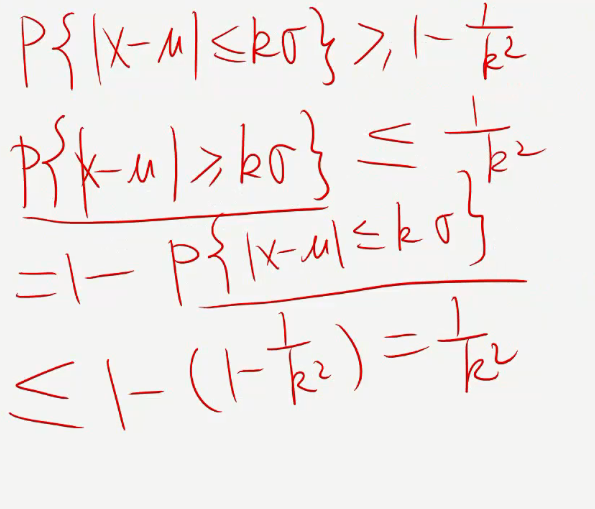 P{|x-μ|≤kσ}≥1-1/k²
P{|x-μ|≥kσ}≤1/k²
=1-P{|x-μ|≤kσ}
≤1-(1-1/k²)=1/k²